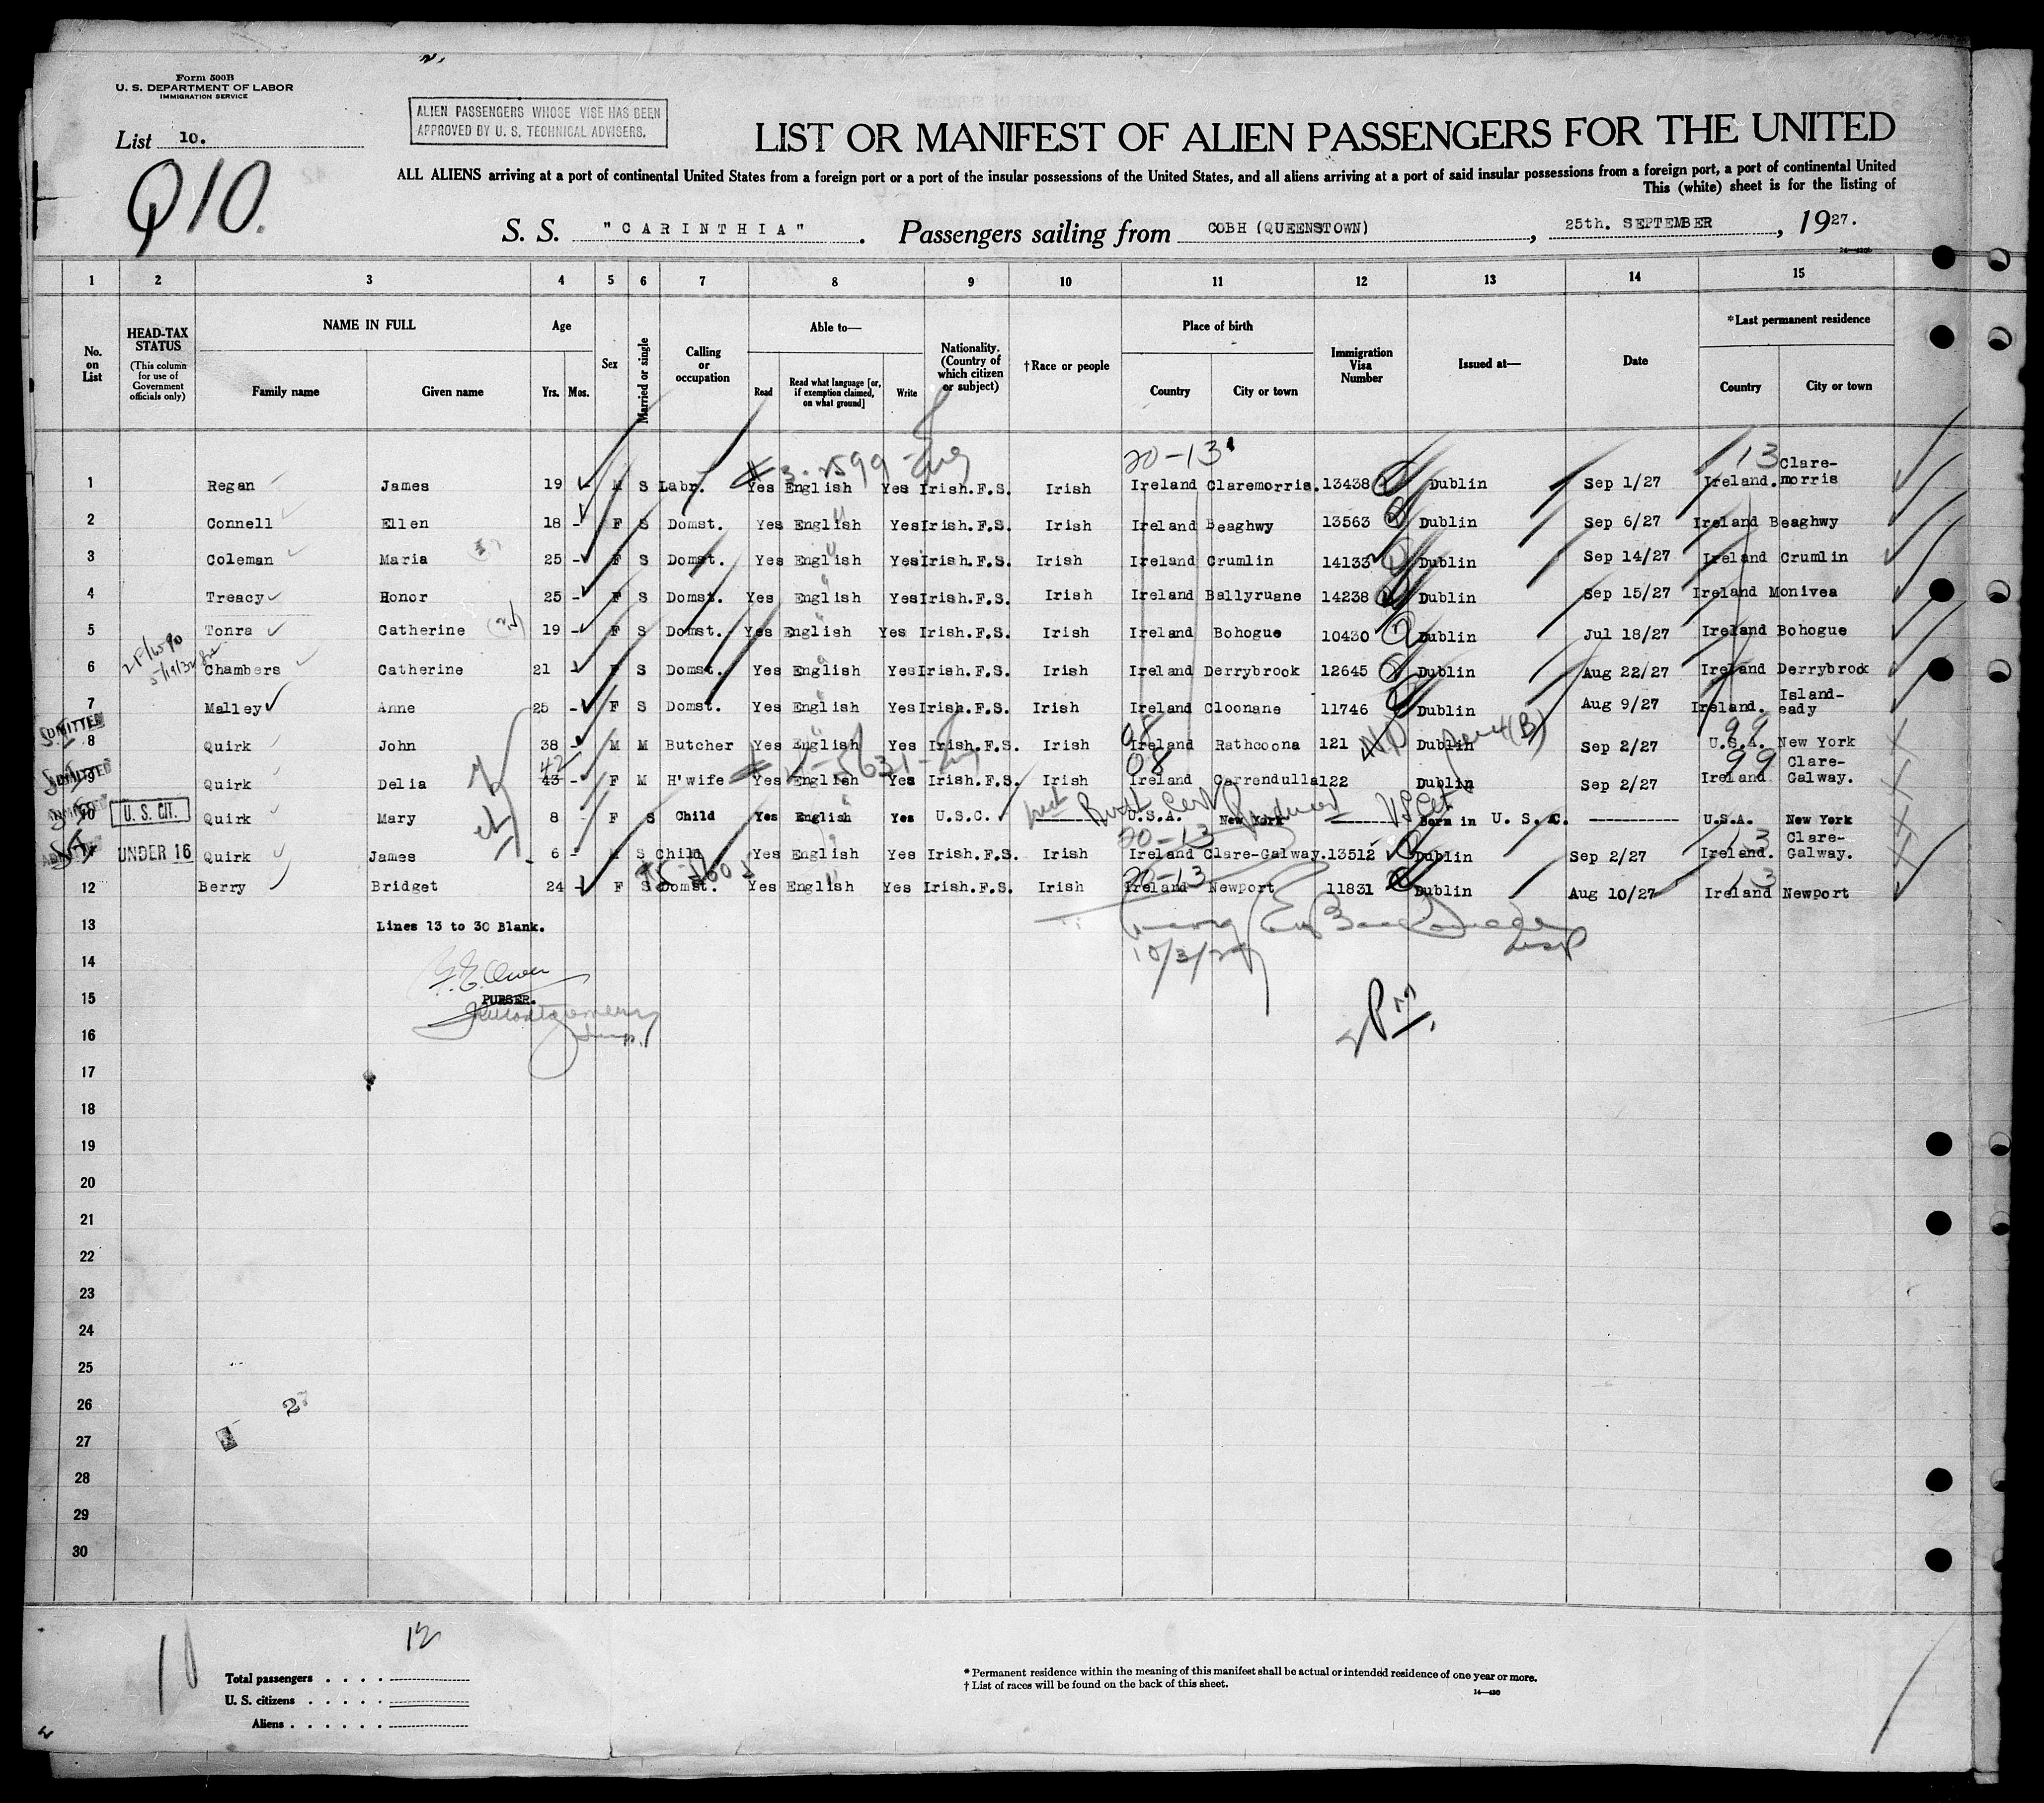 Form 500B
U. S. DEPARTMENT OF LABOR
IMMIGRATION SERVICE
ALIEN PASSENGERS WHOSE VISE HAS BEEN
APPROVED BY U. S. TECHNICAL ADVISERS.
List 10.
Q10.
LIST OR MANIFEST OF ALIEN PASSENGERS FOR THE UNITED
ALL ALIENS arriving at a port of continental United States from a foreign port or a port of the insular possessions of the United States, and all aliens arriving at a port of said insular possessions from a foreign port, a port of continental United
This (white) sheet is for the listing of
S. S. "CARINTHIA". Passengers sailing from COBH (QUEENSTOWN), 25th. SEPTEMBER, 1927.
1 2 3 4 5 6 7 8 9 10 11 12 13 14 15
No. on List
HEAD-TAX STATUS
(This column for use of Government officials only)
NAME IN FULL
Family name Given name
Age
Yrs. Mos.
Sex
Married or single
Calling or occupation
Able to—
Read Read what language [or, if exemption claimed, on what ground] Write
Nationality. (Country of which citizen or subject)
†Race or people
Place of birth
Country City or town
Immigration Visa Number
Issued at—
Date
*Last permanent residence
Country City or town
20-13 13
1 Regan James 19 - M S Labr. Yes English Yes Irish.F.S. Irish Ireland Claremorris. 13438 Dublin Sep 1/27 Ireland. Clare-morris
2 Connell Ellen 18 - F S Domst. Yes English Yes Irish.F.S. Irish Ireland Beaghwy 13563 Dublin Sep 6/27 Ireland Beaghwy
3 Coleman Maria 25 - F S Domst. Yes English Yes Irish.F.S. Irish Ireland Crumlin 14133 Dublin Sep 14/27 Ireland Crumlin
4 Treacy Honor 25 - F S Domst. Yes English Yes Irish.F.S. Irish Ireland Ballyruane 14238 Dublin Sep 15/27 Ireland Monivea
5 Tonra Catherine 19 - F S Domst. Yes English Yes Irish.F.S. Irish Ireland Bohogue 10430 Dublin Jul 18/27 Ireland Bohogue
6 Chambers Catherine 21 F S Domst. Yes English Yes Irish.F.S. Irish Ireland Derrybrook 12645 Dublin Aug 22/27 Ireland Derrybrook
7 Malley Anne 25 - F S Domst. Yes English Yes Irish.F.S. Irish Ireland Cloonane 11746 Dublin Aug 9/27 Ireland. Island-eady
08 99
8 Quirk John 38 - M M Butcher Yes English Yes Irish.F.S. Irish Ireland Rathcoona 121 Dublin Sep 2/27 U.S.A. New York
42 08 99
9 Quirk Delia 43 - F M H'wife Yes English Yes Irish.F.S. Irish Ireland Carrendulla 122 Dublin Sep 2/27 Ireland Clare-Galway.
10 U. S. CIT. Quirk Mary 8 F S Child Yes English Yes U.S.C. U.S.A. New York Born in U. S. A. U.S.A. New York
20-13 13
11 UNDER 16 Quirk James 6 - M S Child Yes English Yes Irish.F.S. Irish Ireland Clare-Galway. 13512 Dublin Sep 2/27 Ireland. Clare-Galway.
20-13 13
12 Berry Bridget 24 - F S Domst. Yes English Yes Irish.F.S. Irish Ireland Newport 11831 Dublin Aug 10/27 Ireland Newport
13 Lines 13 to 30 Blank.
14
15 PURSER.
16
17
18
19
20
21
22
23
24
25
26
27
28
29
30
12
Total passengers
U. S. citizens
Aliens
* Permanent residence within the meaning of this manifest shall be actual or intended residence of one year or more.
† List of races will be found on the back of this sheet.